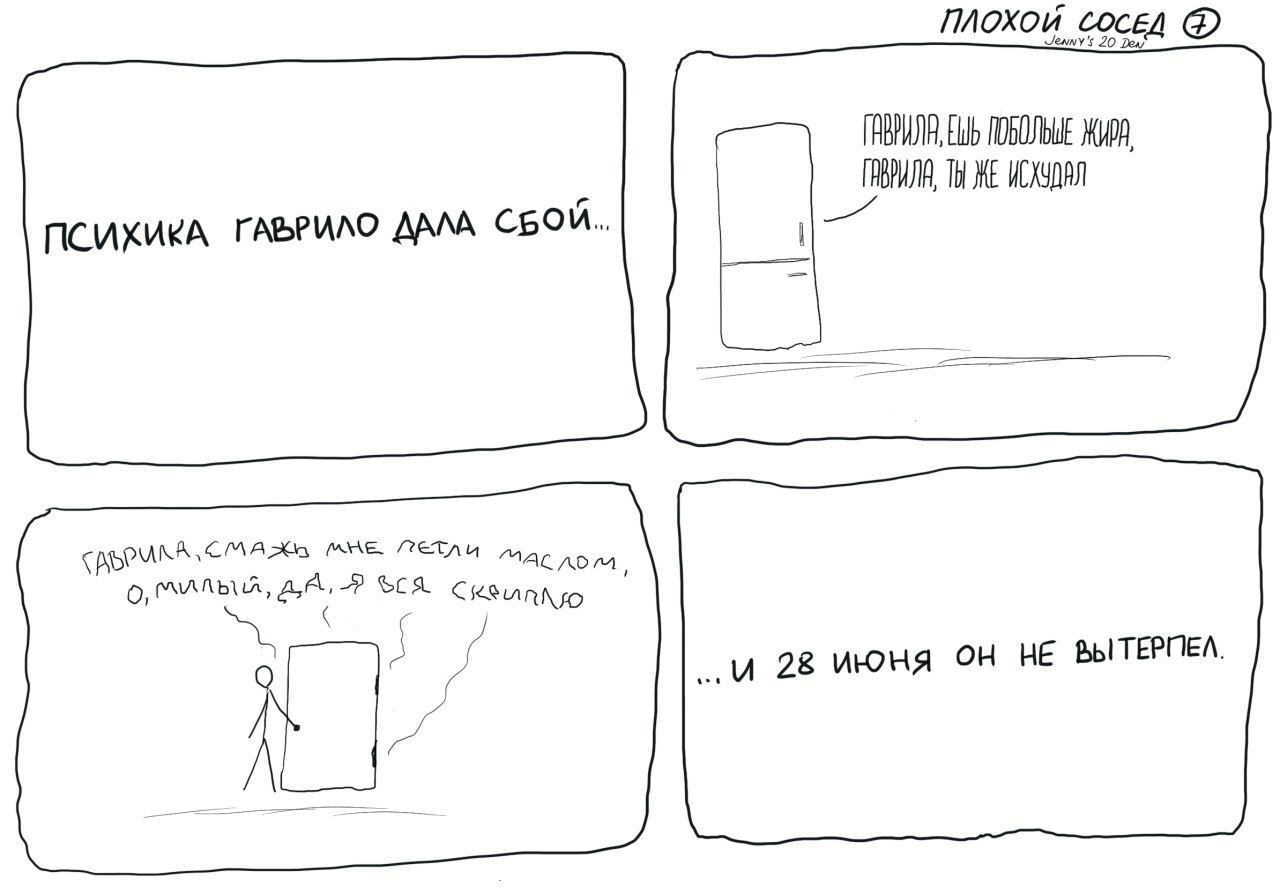 ПЛОХОЙ СОСЕД 7
Jenny's 20 Den
ПСИХИКА ГАВРИЛО ДАЛА СБОЙ...
ГАВРИЛА, ЕШЬ ПОБОЛЬШЕ ЖИРА,
ГАВРИЛА, ТЫ ЖЕ ИСХУДАЛ
ГАВРИЛА, СМАЖЬ МНЕ ПЕТЛИ МАСЛОМ,
О, МИЛЫЙ, ДА, Я ВСЯ СКРИПЛЮ
...И 28 ИЮНЯ ОН НЕ ВЫТЕРПЕЛ.